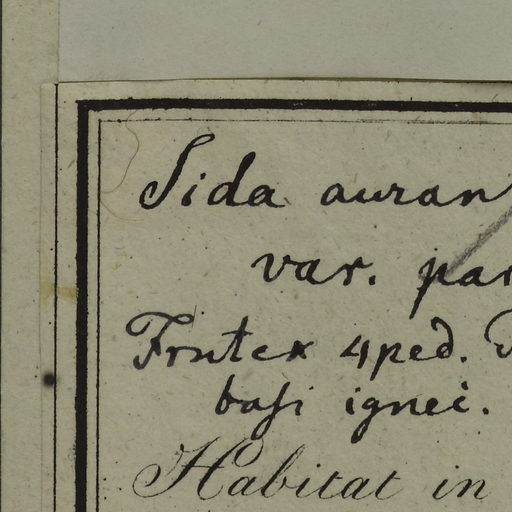 Sida auran
var. par
Frutex 4ped.
basi ignei.
Habitat in